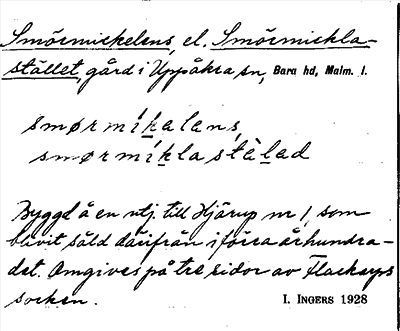 Smörmickelens, el. Smörmickla-
stället, gård i Uppåkra sn, Bara hd, Malm. l.
smørmíkalens,
smørmíkla stèlad
Byggd å en utj. till Hjärup nr 1, som
blivit såld därifrån i förra århundra-
det. Omgives på tre sidor av Flackarps
socken.
I. INGERS 1928